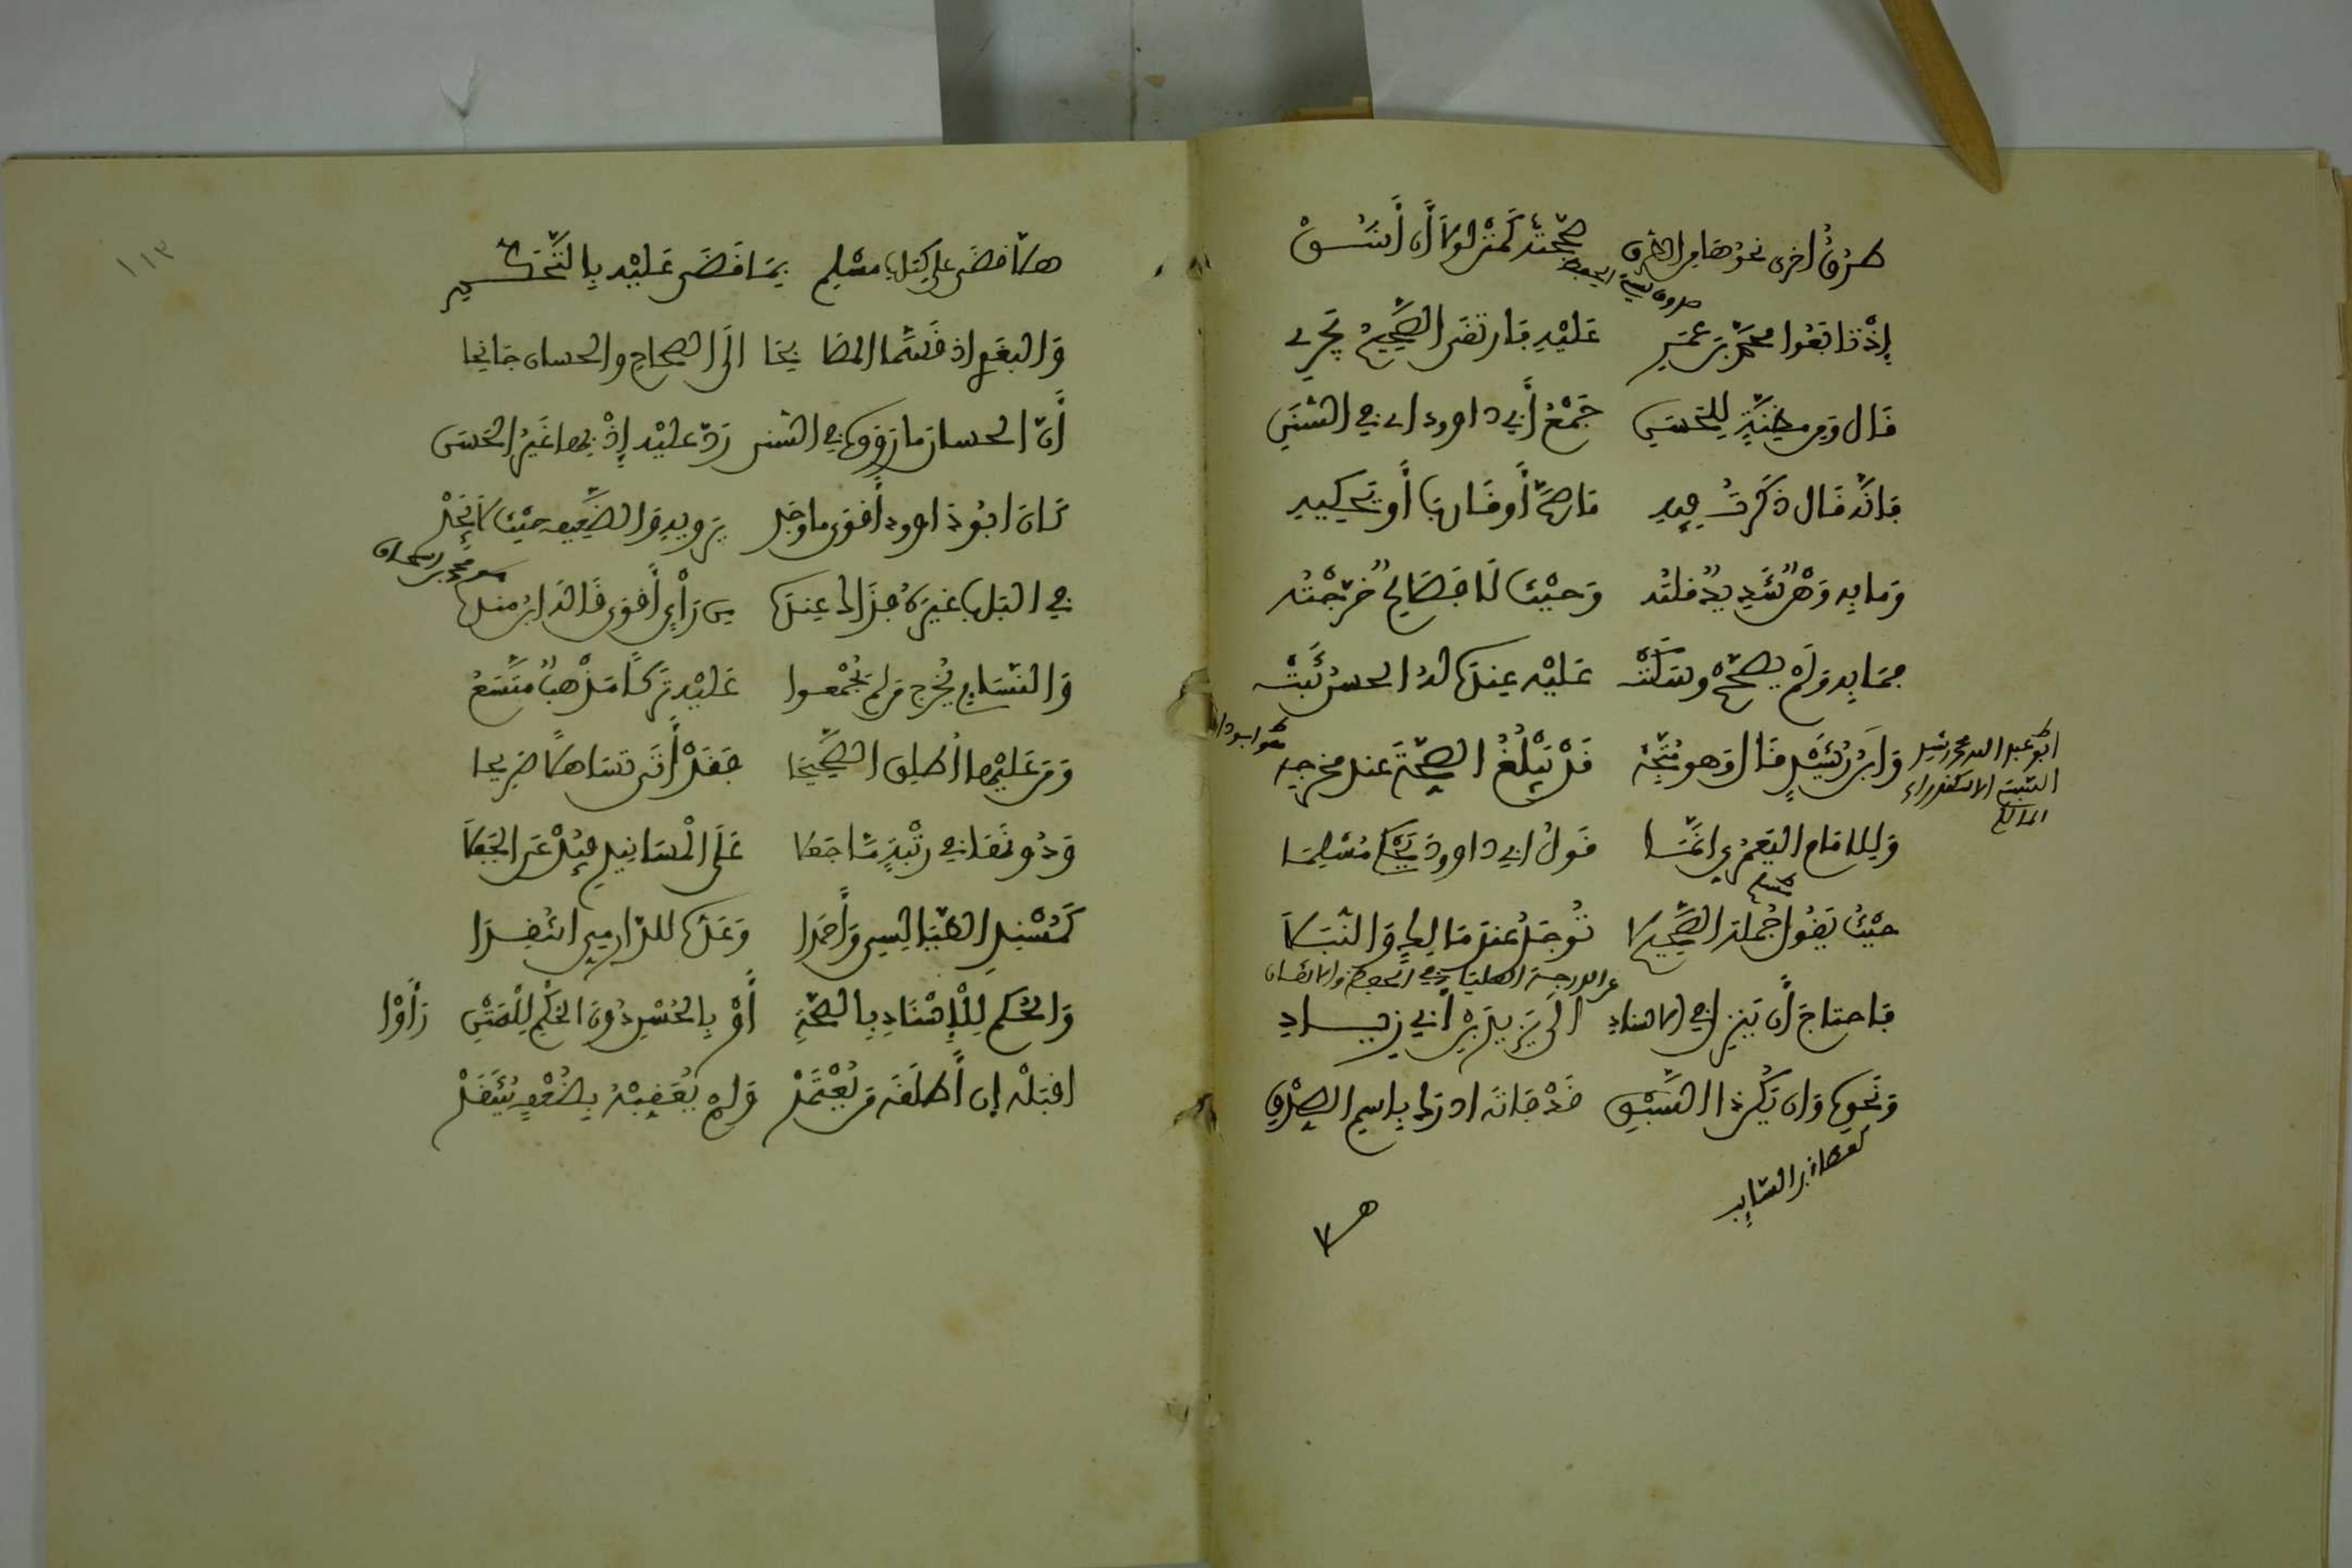 طرق أخرى نحوها من الطرق صححته كمتن لولا أن أشق
صدوق سيئ الحفظ
إذ تابعوا محمد بن عمرو عليه فارتقى الصحيح يجري
قال ومن مظنة للحسن جمع أبي داوود اي في السنن
فإنه قال ذكرت فيه ما صح أو قارب أو يحكيه
وما به وهن شديد قلته وحيث لا فصالح خرجته
فما به ولم يصحح وسكت عليه عنده له الحسن ثبت
ابو عبد الله محمد بن رشيد السبتي
المالكي
وابن رشيد قال وهو متجه قد يبلغ الصحة عند مخرجه
هو ابو داود
وللإمام اليعمري انما قول ابي داوود يحكي مسلما
مسلم
حيث يقول جملة الصحيح لا توجد عند مالك والنبلا
عن الدرجة العليا في الحفظ والاتقان
فاحتاج أن ينزل في الاسناد الى يزيد بن أبي زياد
ونحوه وان يكن ذا السبق قد فاته ادرك باسم الصدق
كعطاء بن السايب
١١٣
هلا قضى على كتاب مسلم بما قضى عليه بالتحكم
والبغوي اذ قسم المصابحا الى الصحاح والحسان جانحا
أن الحسان ما رووه في السنن رد عليه إذ بها غير الحسن
كان ابو داوود أقوى ما وجد يرويه والضعيف حيث لا يجد
في الباب غيره فذاك عنده من رأي أقوى قاله ابن منده
هو محمد بن اسحاق
والنسائي يخرج من لم يجمعوا عليه تركا مذهب متسع
ومن عليها اطلق الصحيحا فقد أتى تساهلا صريحا
ودونها في رتبة ما جعلا على المسانيد فيدعى الجفلا
كمسند الطيالسي وأحمدا وعده للدارمي انتقدا
والحكم للإسناد بالصحة أو بالحسن دون الحكم للمتن رأوا
اقبله إن أطلقه من يعتمد ولم يعقبه بضعف ينتقد